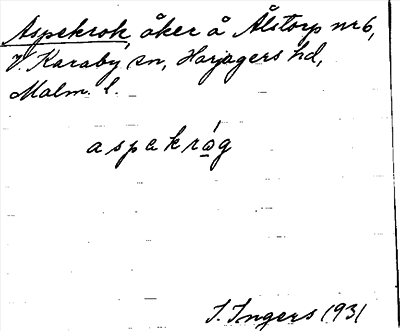 Aspekrok, åker å Ålstorp nr 6,
V. Karaby sn, Harjagers hd,
Malm. l.
aspekróg
I. Ingers 1931